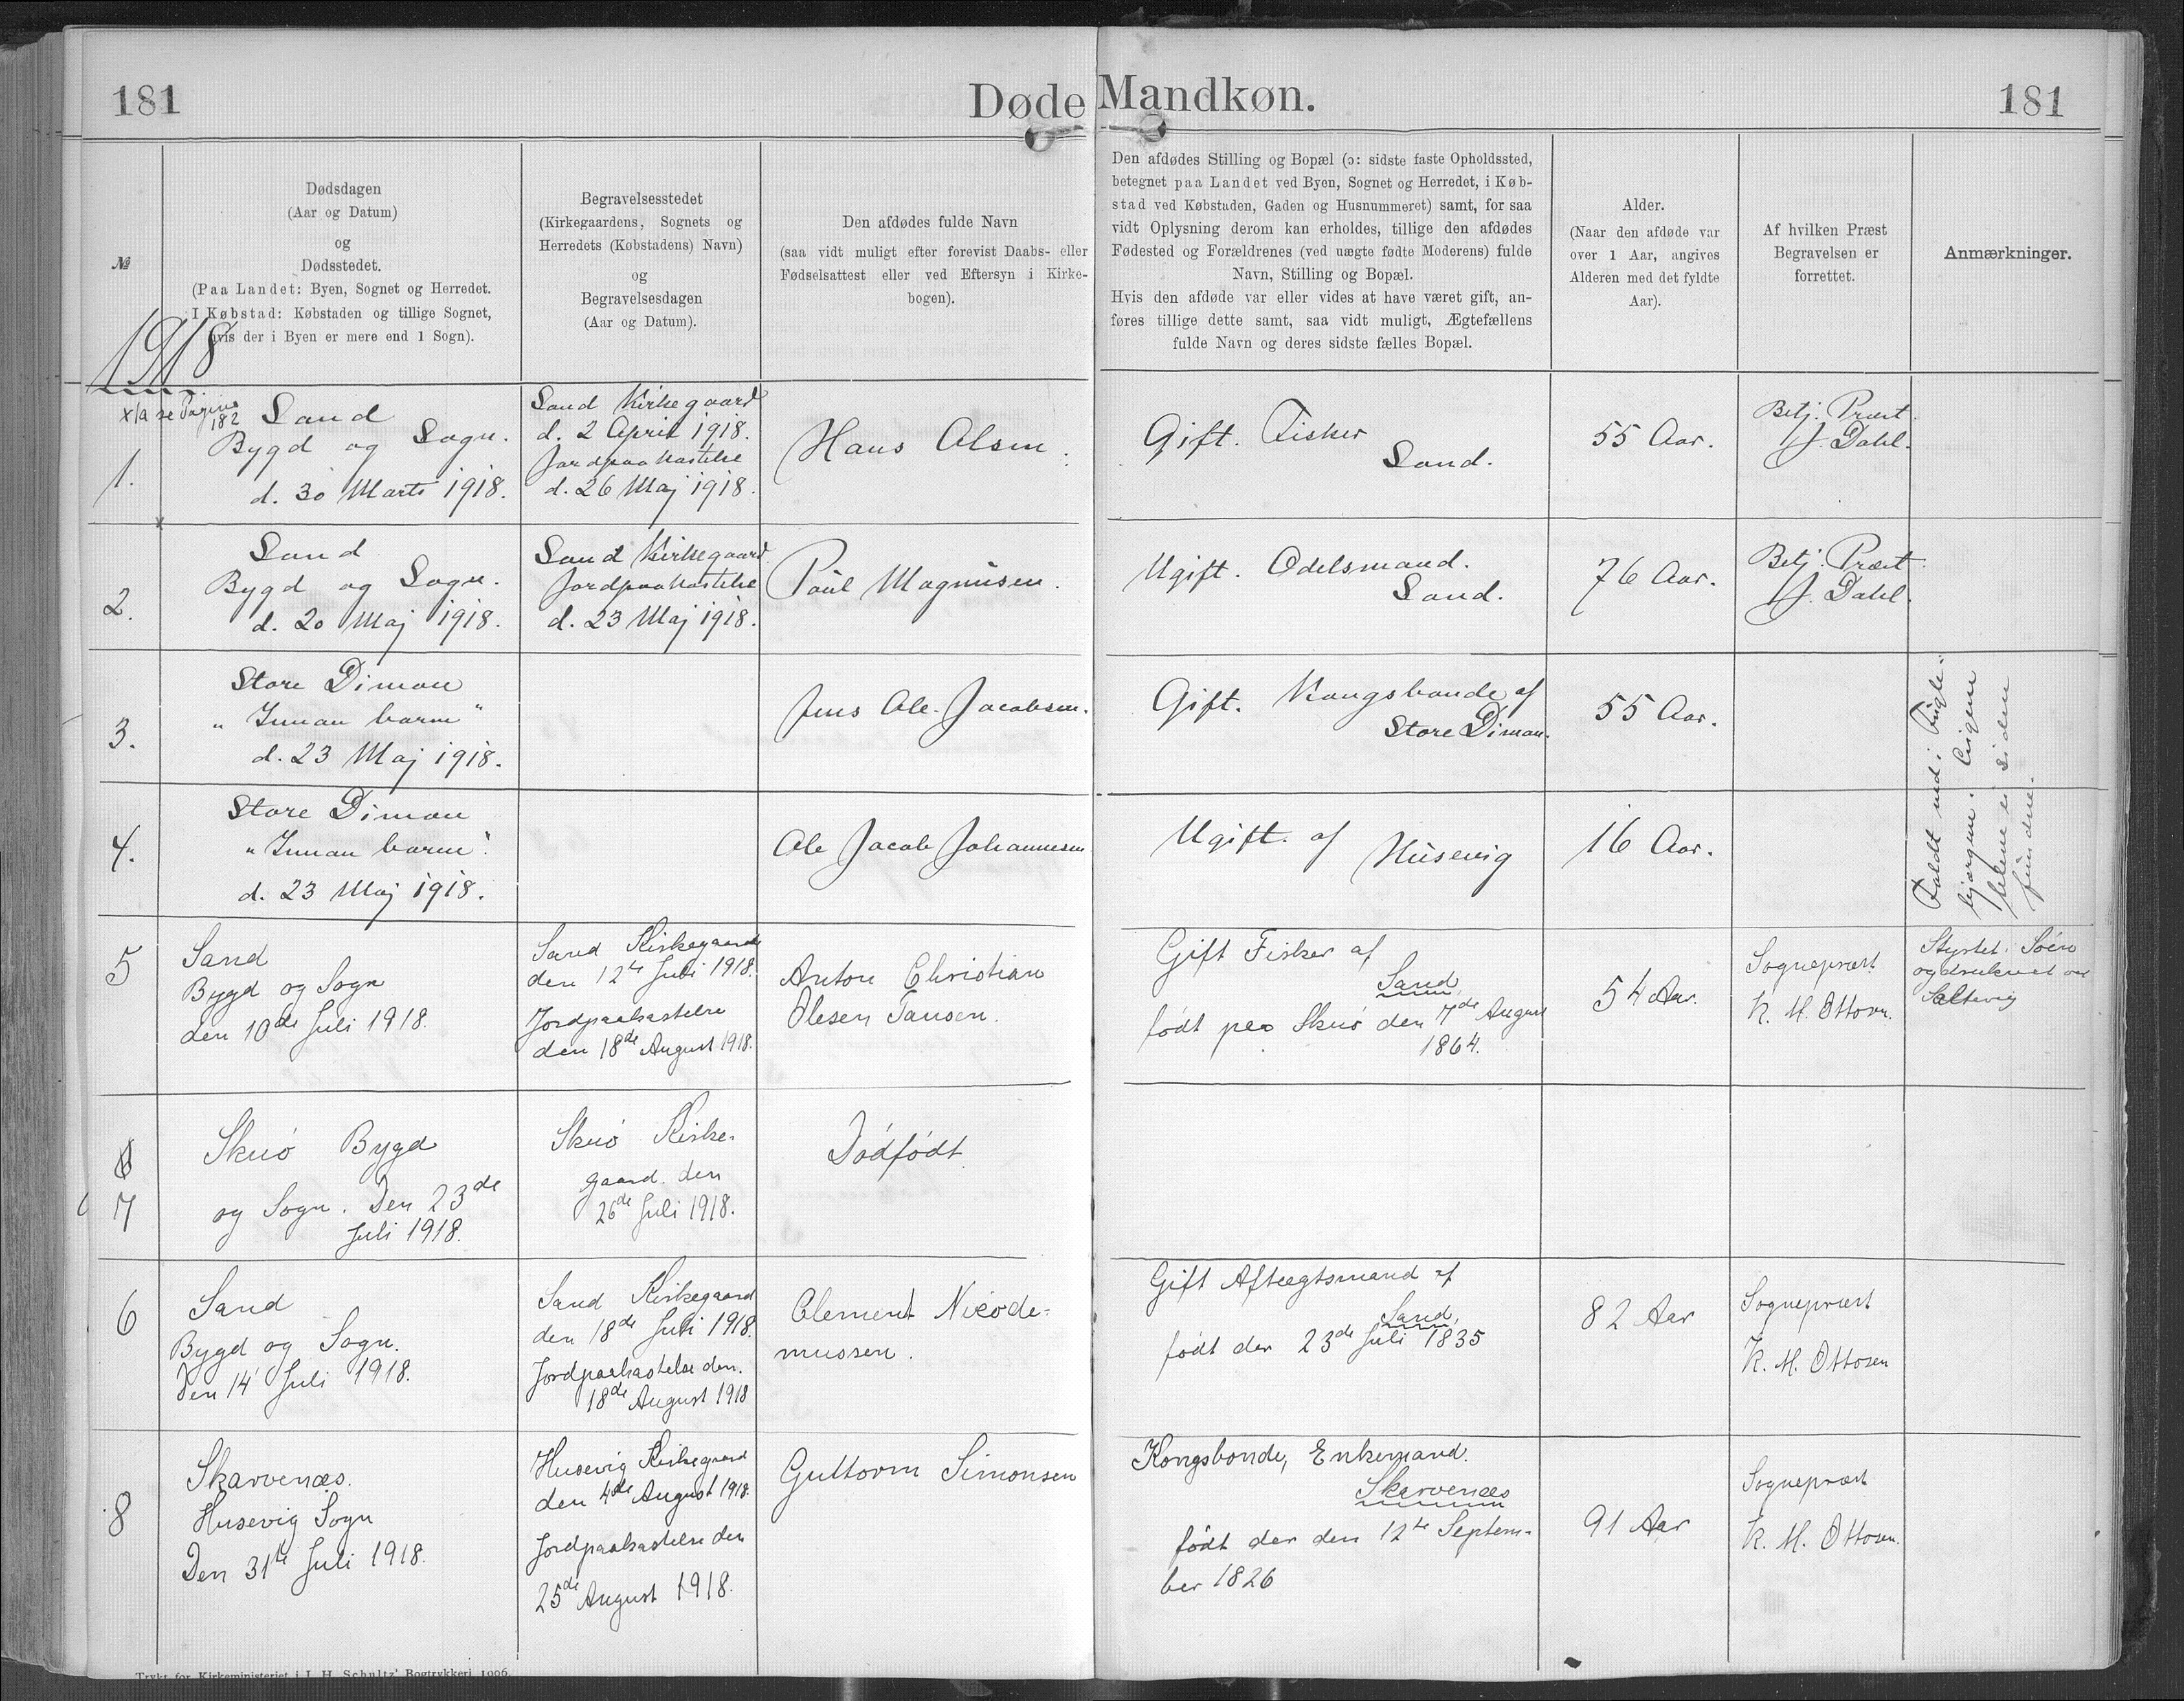 181
Døde Mandkøn.
181
№
Dødsdagen
(Aar og Datum)
og
Dødsstedet.
(Paa Landet: Byen, Sognet og Herredet.
I Købstad: Købstaden og tillige Sognet,
hvis der i Byen er mere end 1 Sogn).
Begravelsesstedet
(Kirkegaardens, Sognets og
Herredets (Købstadens) Navn)
og
Begravelsesdagen
(Aar og Datum).
Den afdødes fulde Navn
(saa vidt muligt efter forevist Daabs- eller
Fødselsattest eller ved Eftersyn i Kirke-
bogen).
Den afdødes Stilling og Bopæl (ɔ: sidste faste Opholdssted,
betegnet paa Landet ved Byen, Sognet og Herredet, i Køb-
stad ved Købstaden, Gaden og Husnummeret) samt, for saa
vidt Oplysning derom kan erholdes, tillige den afdødes
Fødested og Forældrenes (ved uægte fødte Moderens) fulde
Navn, Stilling og Bopæl.
Hvis den afdøde var eller vides at have været gift, an-
føres tillige dette samt, saa vidt muligt, Ægtefællens
fulde Navn og deres sidste fælles Bopæl.
Alder.
(Naar den afdøde var
over 1 Aar, angives
Alderen med det fyldte
Aar).
Af hvilken Præst
Begravelsen er
forrettet.
Anmærkninger.
1918
x/a se Pagina
182
1.
Sand
Bygd og Sogn.
d. 30 Marts 1918.
Sand Kirkegaard
d. 2 April 1918.
Jordpaakastelse
d. 26 Maj 1918.
Hans Olsen.
Gift. Fisker
Sand.
55 Aar.
Betj. Præst
J. Dahl.
x
2.
Sand
Bygd og Sogn.
d. 20 Maj 1918.
Sand Kirkegaard
Jordpaakastelse
d. 23 Maj 1918.
Poul Magnusen.
Ugift. Odelsmand.
Sand.
76 Aar.
Betj. Præst
J. Dahl.
3.
Store Dimon
"Innan barm"
d. 23 Maj 1918.
Jens Ole Jacobsen.
Gift. Kongsbonde af
Store Dimon.
55 Aar.
Faldt ned i Fugle-
bjærgene. Ligene
blene ei siden
fundne.
4.
Store Dimon
"Innan barm".
d. 23 Maj 1918.
Ole Jacob Johannesen
Ugift. af
Husevig
16 Aar.
5
Sand
Bygd og Sogn
den 10de Juli 1918.
Sand Kirkegaard
den 12te Juli 1918.
Jordpaakastelse
den 18de August 1918.
Anton Christian
Olesen Tausen.
Gift Fisker af
Sand,
født paa Skuø den 7de August
1864.
54 Aar.
Sognepræst
K. M. Ottosen.
Styrtet i Søen
og druknet ved
Saltevig
6
7
Skuø Bygd
og Sogn. Den 23de
Juli 1918.
Skuø Kirke-
gaard. den
26de Juli 1918.
Dødfødt
6
Sand
Bygd og Sogn.
Den 14 Juli 1918.
Sand Kirkegaard
den 18de Juli 1918.
Jordpaakastelse den.
18de August 1918
Clement Nicode-
mussen.
Gift Aftægtsmand af
Sand,
født der 23de Juli 1835
82 Aar
Sognepræst
K. M. Ottosen
8
Skarvenæs.
Husevig Sogn
Den 31te Juli 1918.
Husevig Kirkegaard
den 4de August 1918.
Jordpaakastelse den
25de August 1918.
Guttorm Simonsen
Kongsbonde, Enkemand.
Skarvenæs
født der den 12te Septem-
ber 1826
91 Aar
Sognepræst
K. M. Ottosen.
Trykt for Kirkeministeriet i J. H. Schultz' Bogtrykkeri 1906.